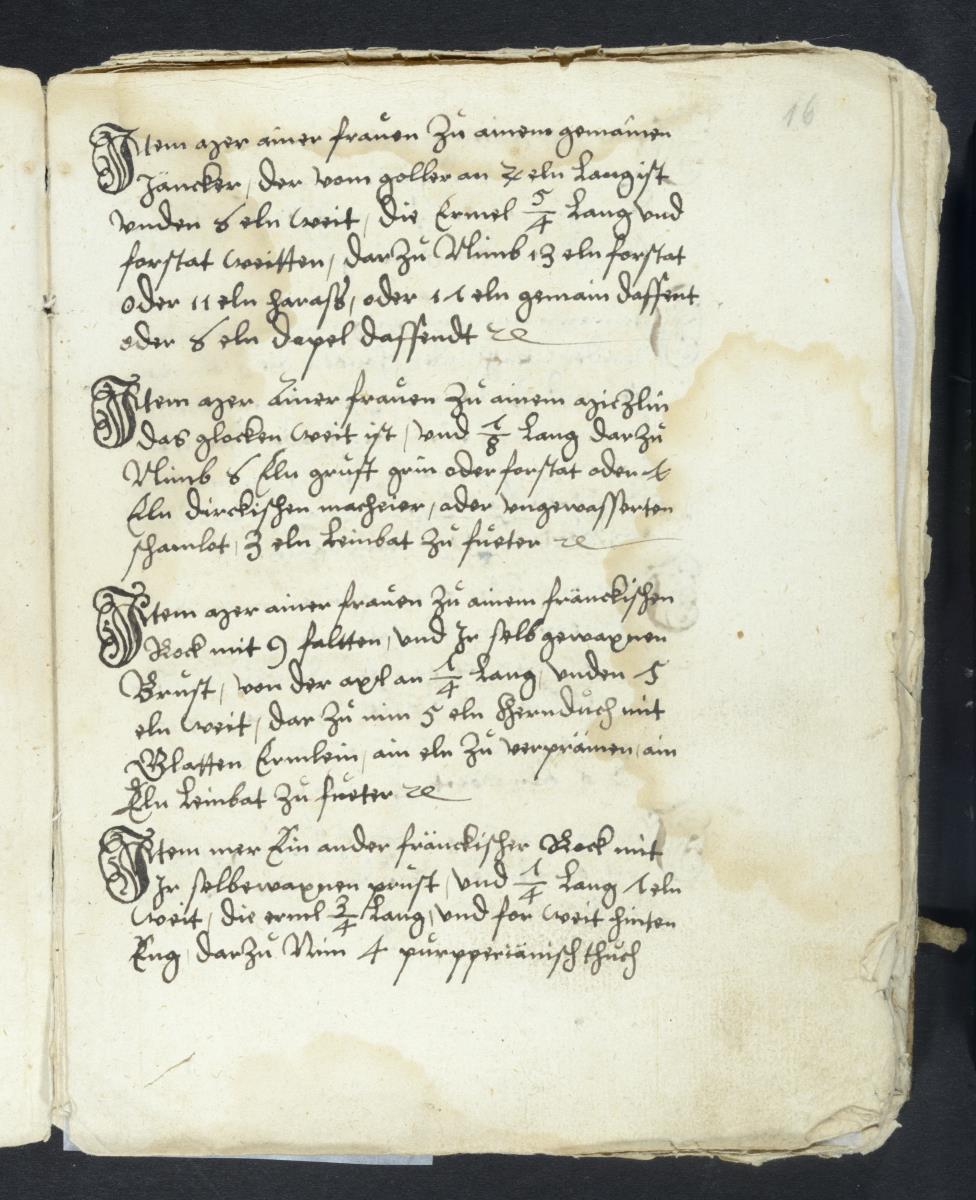 16
Item mer ainer frauen Zu ainem gemainen
Jäncker, der vom goller an 2 eln Lang ist
vnden 8 eln weit, die Ermel 5/4 Lang vnd
forstat weitten, darzu Nimb 13 eln forstat
oder 11 eln harass, oder 11 eln gemain daffent
oder 8 eln dopel daffendt ꝛc
Item mer Einer frauen Zu ainem
das glocken weit ist, vnd 7/8 Lang darzu
Nimb 8 Eln grin oder forstat oder 7
Eln dirckischen macheier, oder vngewasserten
schamlot, 3 eln Leinbat Zu fueter ꝛc
Item mer ainer frauen Zu ainem fränckischen
Rock mit 9 faltten, vnd Ir selb gewaxnen
Brust, von der axl an 7/4 Lang, vnden 5
eln weit, dar Zu nim 5 eln Hernduch mit
Blatten Ermlein, ain eln Zu verprämen, ain
Eln Leinbat Zu fueter ꝛc
Item mer Ein ander fränckischer Rock mit
Ir selbewaxnen prust, vnd 7/4 Lang 7 eln
weit, die erml 3/4 Lang, vnd for weit hinten
Eng, darzu Nim 4 purpperianisch thuch